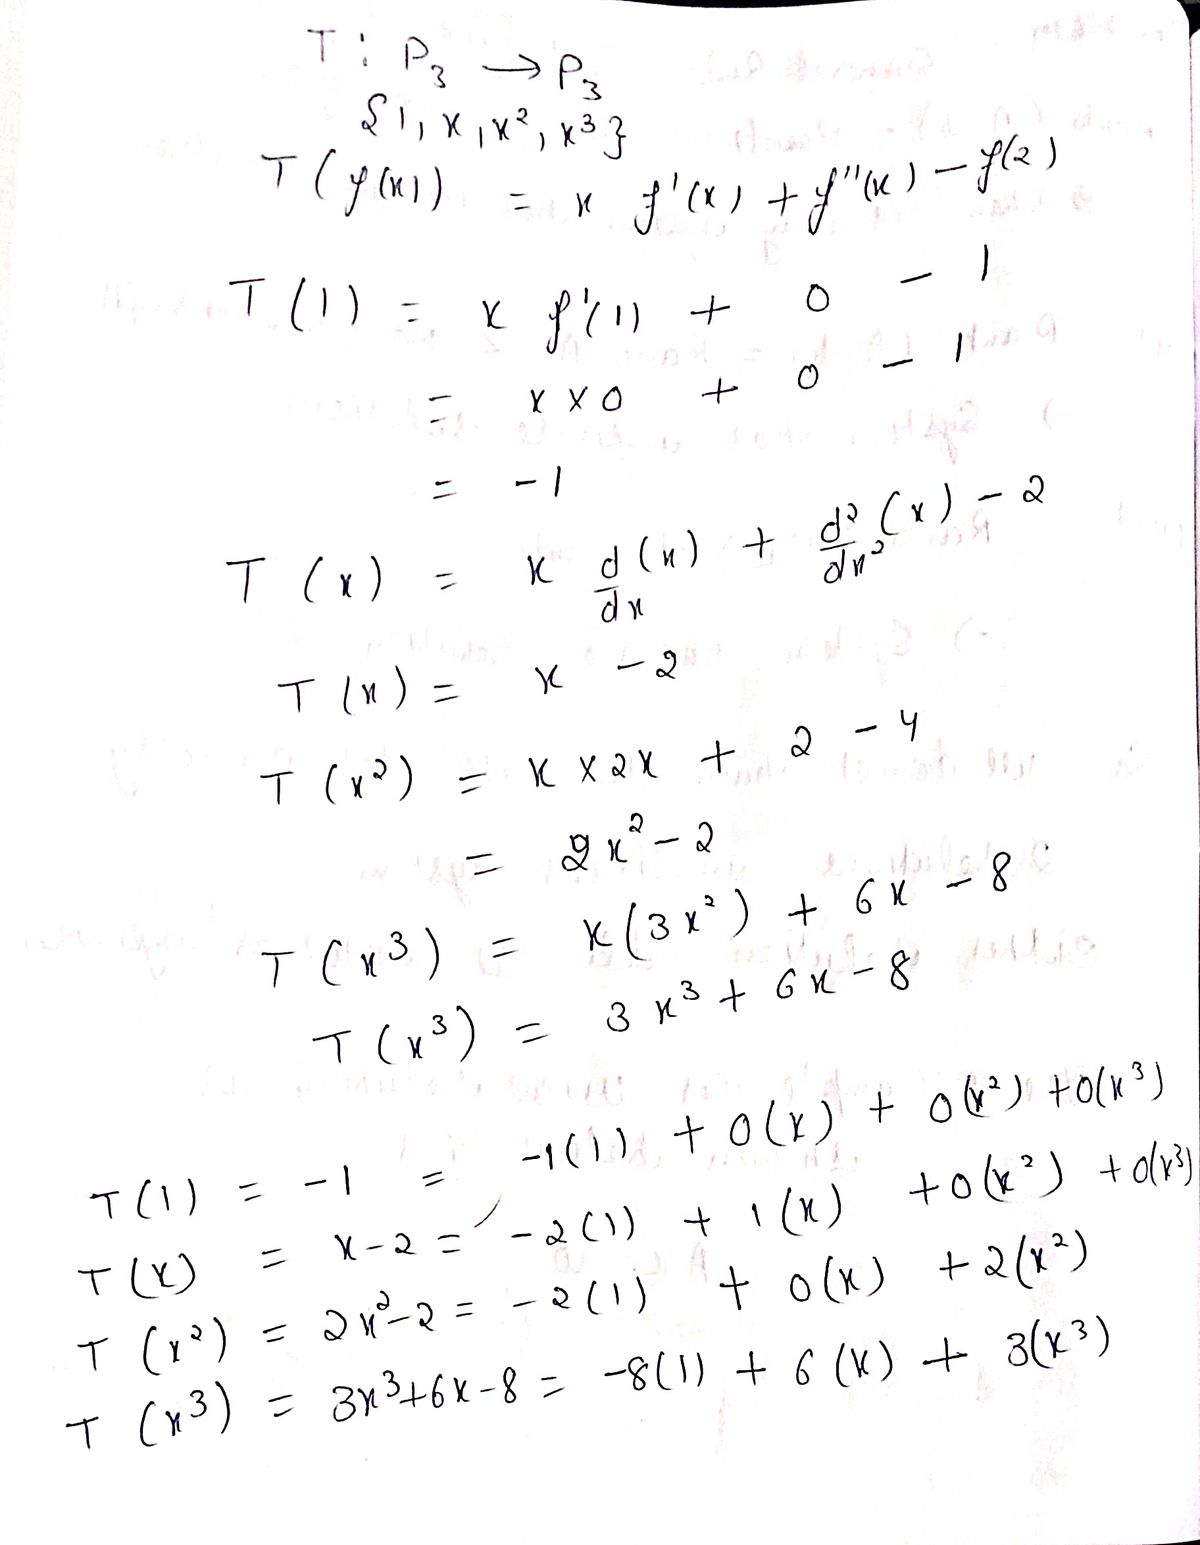 T : P₃ → P₃
{1, x, x², x³}
T(f(x)) = x f'(x) + f''(x) - f(2)
T(1) = x f'(1) + 0 - 1
= x × 0 + 0 - 1
= -1
T(x) = x d/dx (x) + d²/dx² (x) - 2
T(x) = x - 2
T(x²) = x × 2x + 2 - 4
= 2x² - 2
T(x³) = x(3x²) + 6x - 8
T(x³) = 3x³ + 6x - 8
T(1) = -1 = -1(1) + 0(x) + 0(x²) + 0(x³)
T(x) = x-2 = -2(1) + 1(x) + 0(x²) + 0(x³)
T(x²) = 2x²-2 = -2(1) + 0(x) + 2(x²)
T(x³) = 3x³+6x-8 = -8(1) + 6(x) + 3(x³)